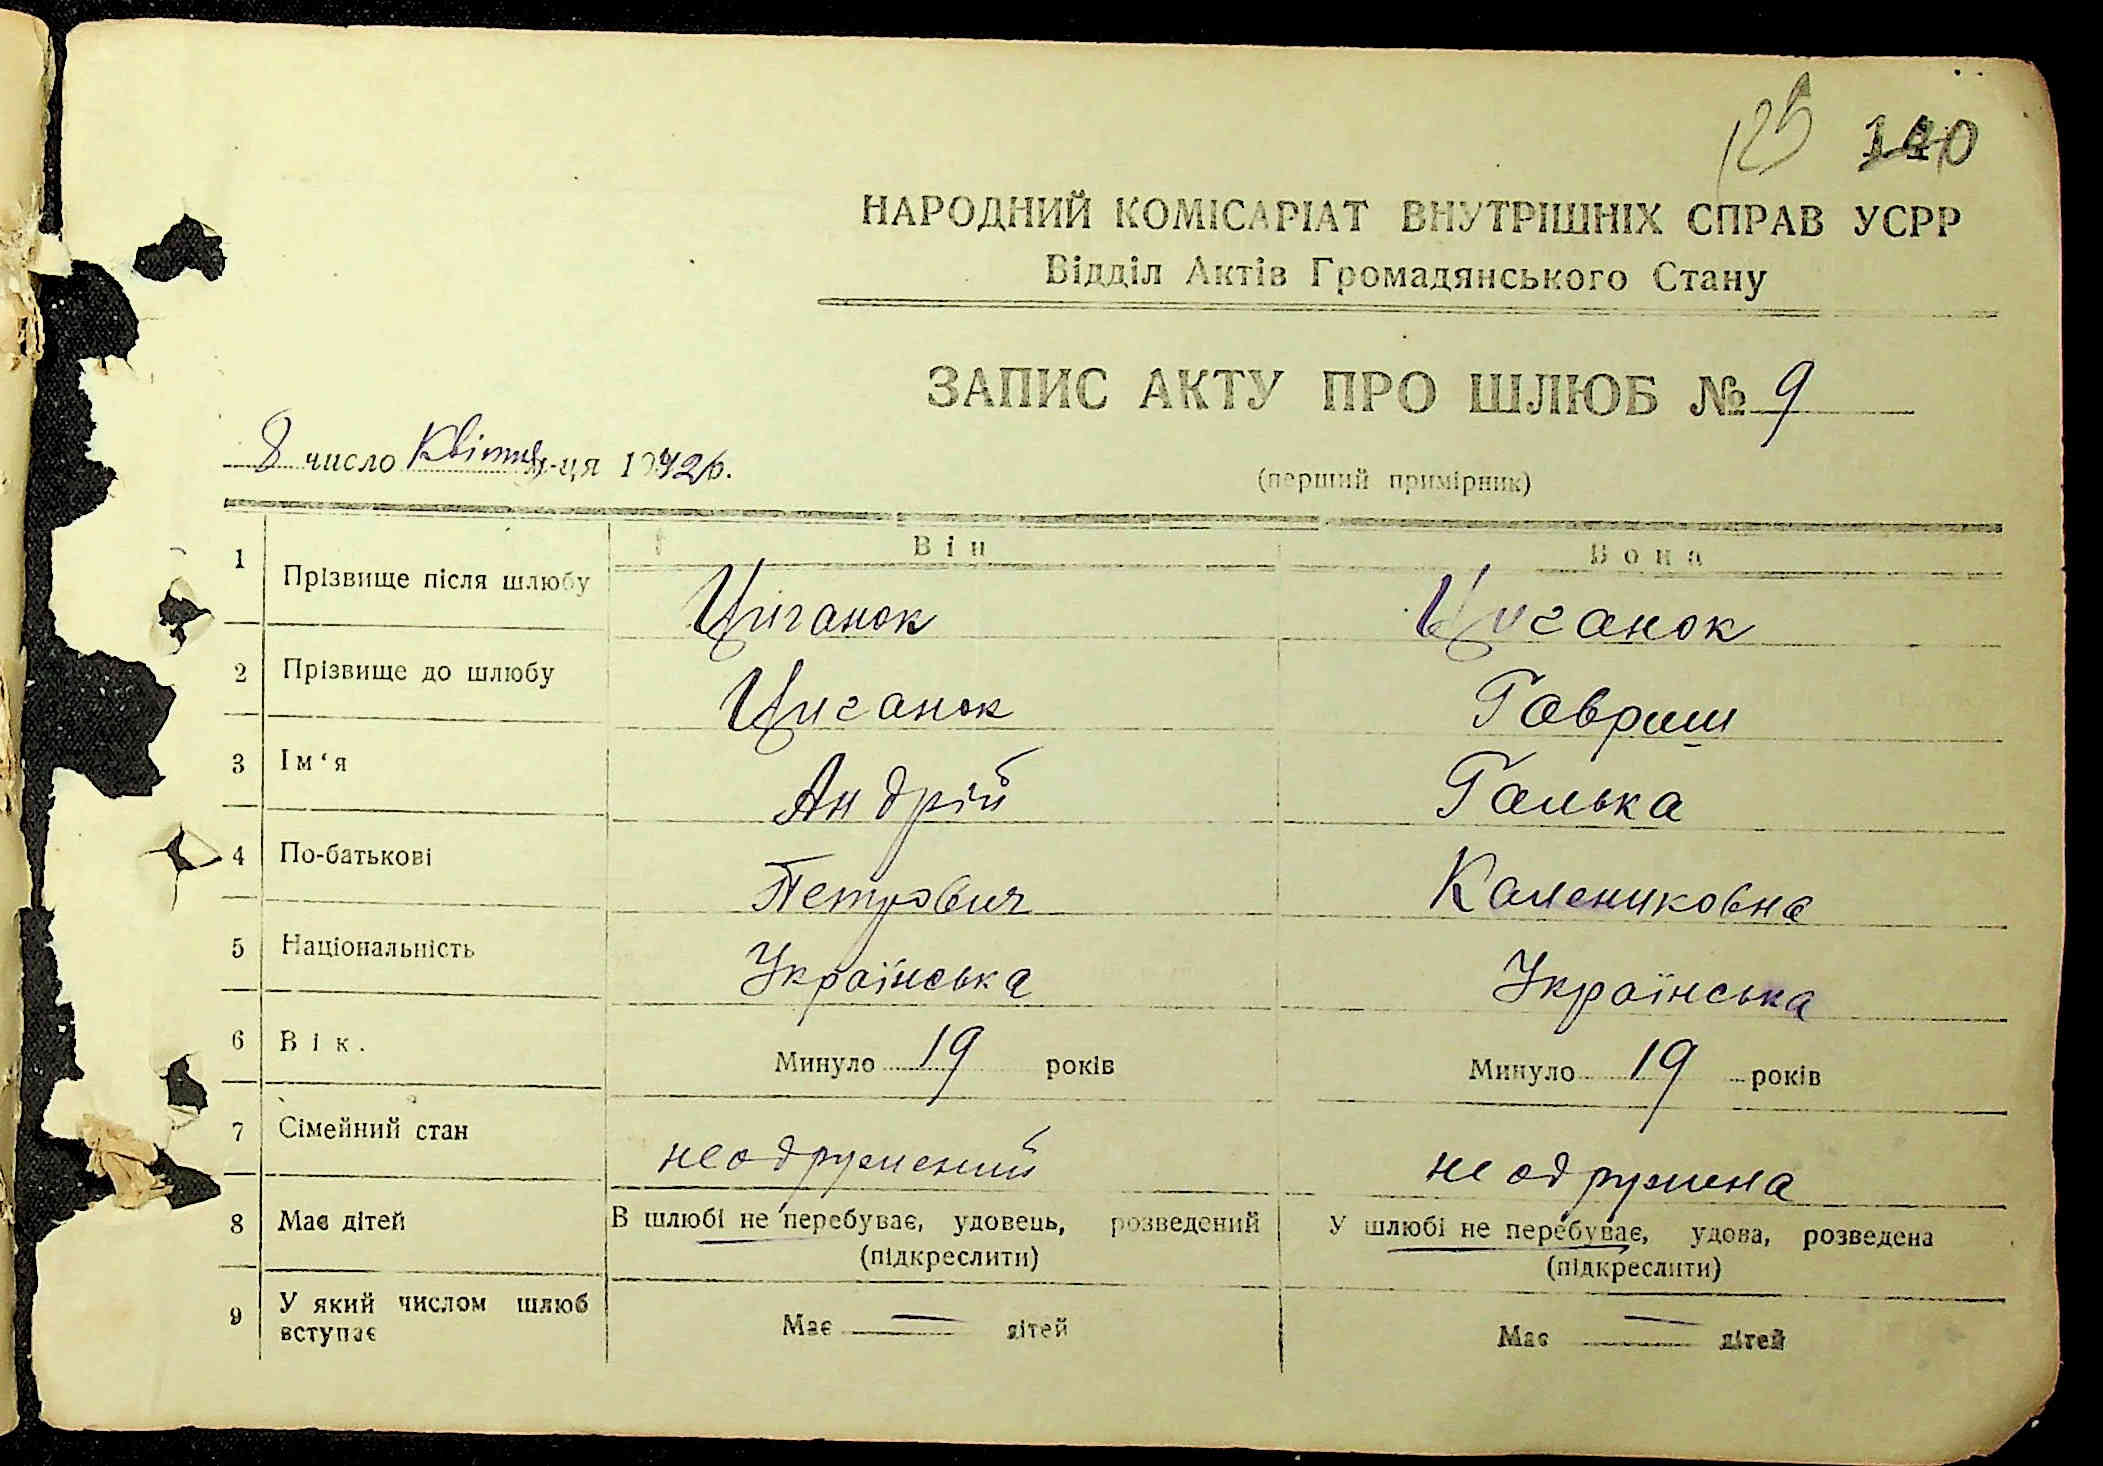 125 140
НАРОДНИЙ КОМІСАРІАТ ВНУТРІШНІХ СПРАВ УСРР
Відділ Актів Громадянського Стану
ЗАПИС АКТУ ПРО ШЛЮБ № 9
8 число Квітня м-ця 1942 р.
(перший примірник)
Він Вона
1 Прізвище після шлюбу Циганок Циганок
2 Прізвище до шлюбу Циганок Гавриш
3 Ім‘я Андрій Галька
4 По-батькові Петрович Калениковна
5 Національність Українська Українська
6 Вік. Минуло 19 років Минуло 19 років
7 Сімейний стан неодружений неодружена
8 Має дітей В шлюбі не перебуває, удовець, розведений У шлюбі не перебуває, удова, розведена
(підкреслити) (підкреслити)
9 У який числом шлюб
вступає Має — дітей Має — дітей